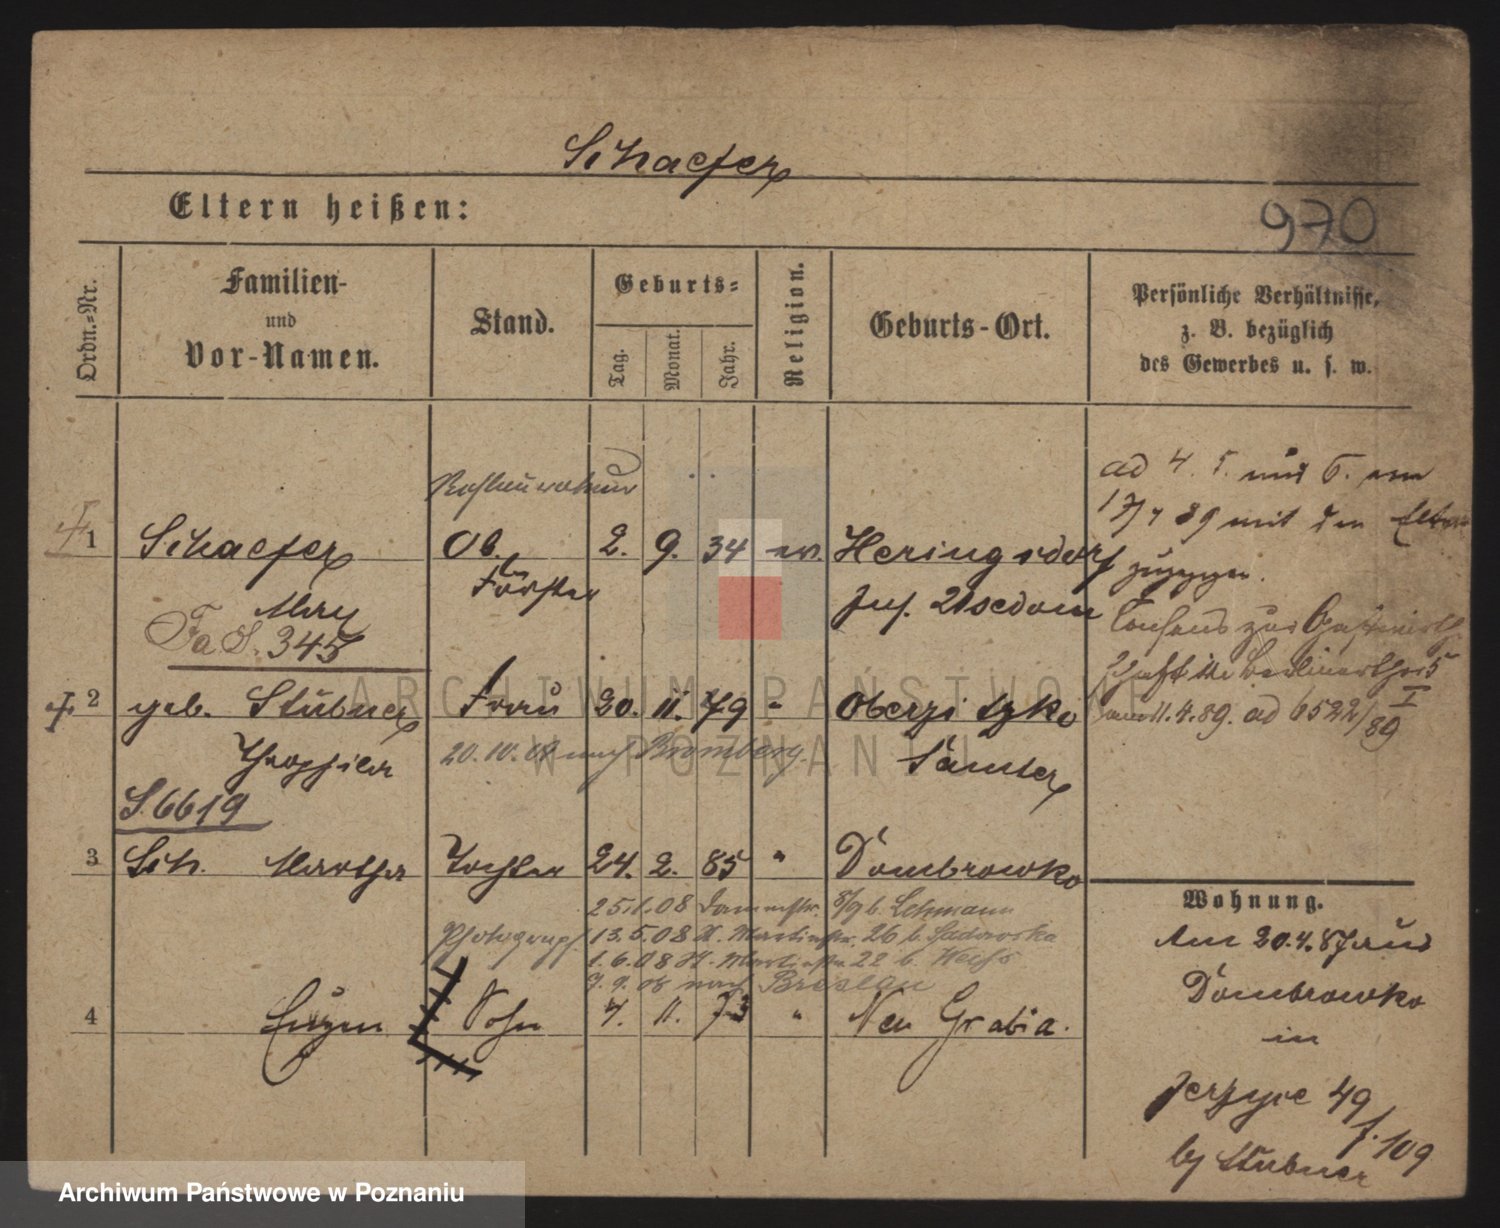 Schaefer
Eltern heißen:
970
Ordn.-Nr.
Familien-
und
Vor-Namen.
Stand.
Geburts-
Tag.
Monat.
Jahr.
Religion.
Geburts-Ort.
Persönliche Verhältnisse,
z. B. bezüglich
des Gewerbes u. s. w.
Restaurateur
1 Schaefer Ob. 2. 9. 34 ev. Heringsdorf
Förster
Max
Ins. Usedom
Fa S. 345
ad 4. 5. und 6. am
89 mit den Eltern
zuzogen.
Consens zur
11.4.89. ad 6522/89
I
2 geb. Stübner Frau 20. 11. 49 " Obersitzko
Theophila
20.10.07 nach Bromberg.
Samter
S. 6619
3 Sch. Martha Tochter 24. 2. 85 " Dombrowko
25.1.08 Dammstr. 8/9 b. Lehmann
Photograph 13.5.08 St. Martinstr. 26 b. Sadowska
1.6.08 St. Martinstr. 22 b. Weiss
9.9.08 nach Breslau
4 Eugen Sohn 7. 11. 73 " Neu Grabia.
Wohnung.
Am 20.4.87 aus
Dombrowko
in
Jerzyce 49
f. 109
by Stübner
ARCHIWUM PAŃSTWOWE
W POZNANIU
Archiwum Państwowe w Poznaniu